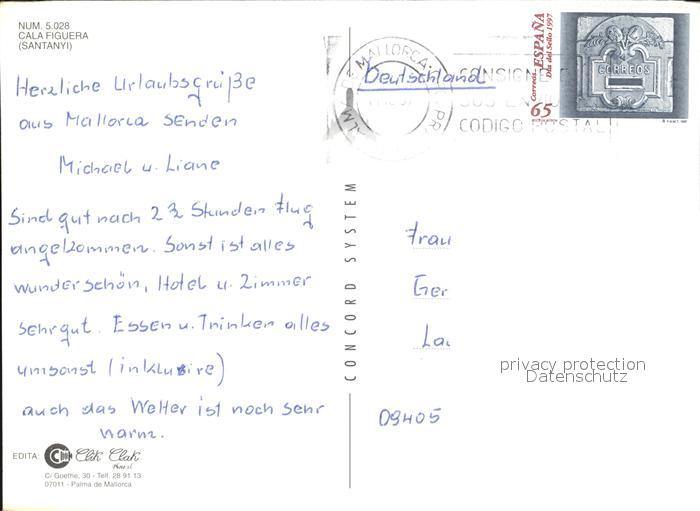 NUM. 5.028
CALA FIGUERA
(SANTANYI)
Herzliche Urlaubsgrüße
aus Mallorca senden
Michael u. Liane
Sind gut nach 2 ½ Stunden Flug
angekommen. Sonst ist alles
wunderschön, Hotel u. Zimmer
sehr gut. Essen u. Trinken alles
umsonst (inklusive)
auch das Wetter ist noch sehr
warm.
EDITA:
Clik Clak
C/ Goethe, 30 - Telf. 28 91 13
07011 - Palma de Mallorca
CONCORD SYSTEM
MALLORCA
Deutschland
CONSIGNE
CODIGO POSTAL
Correos ESPAÑA
Día del Sello 1997
65
CORREOS
Frau
Ger
La
privacy protection
Datenschutz
09405